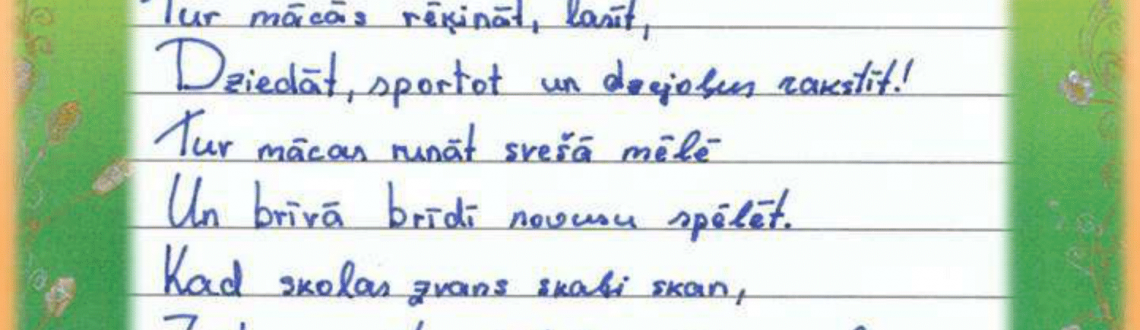 Tur mācās rēķināt, lasīt,
Dziedāt, sportot un dzejoļus rakstīt!
Tur mācas runāt svešā mēlē
Un brīvā brīdī novusu spēlēt.
Kad skolas zvans skaļi skan,